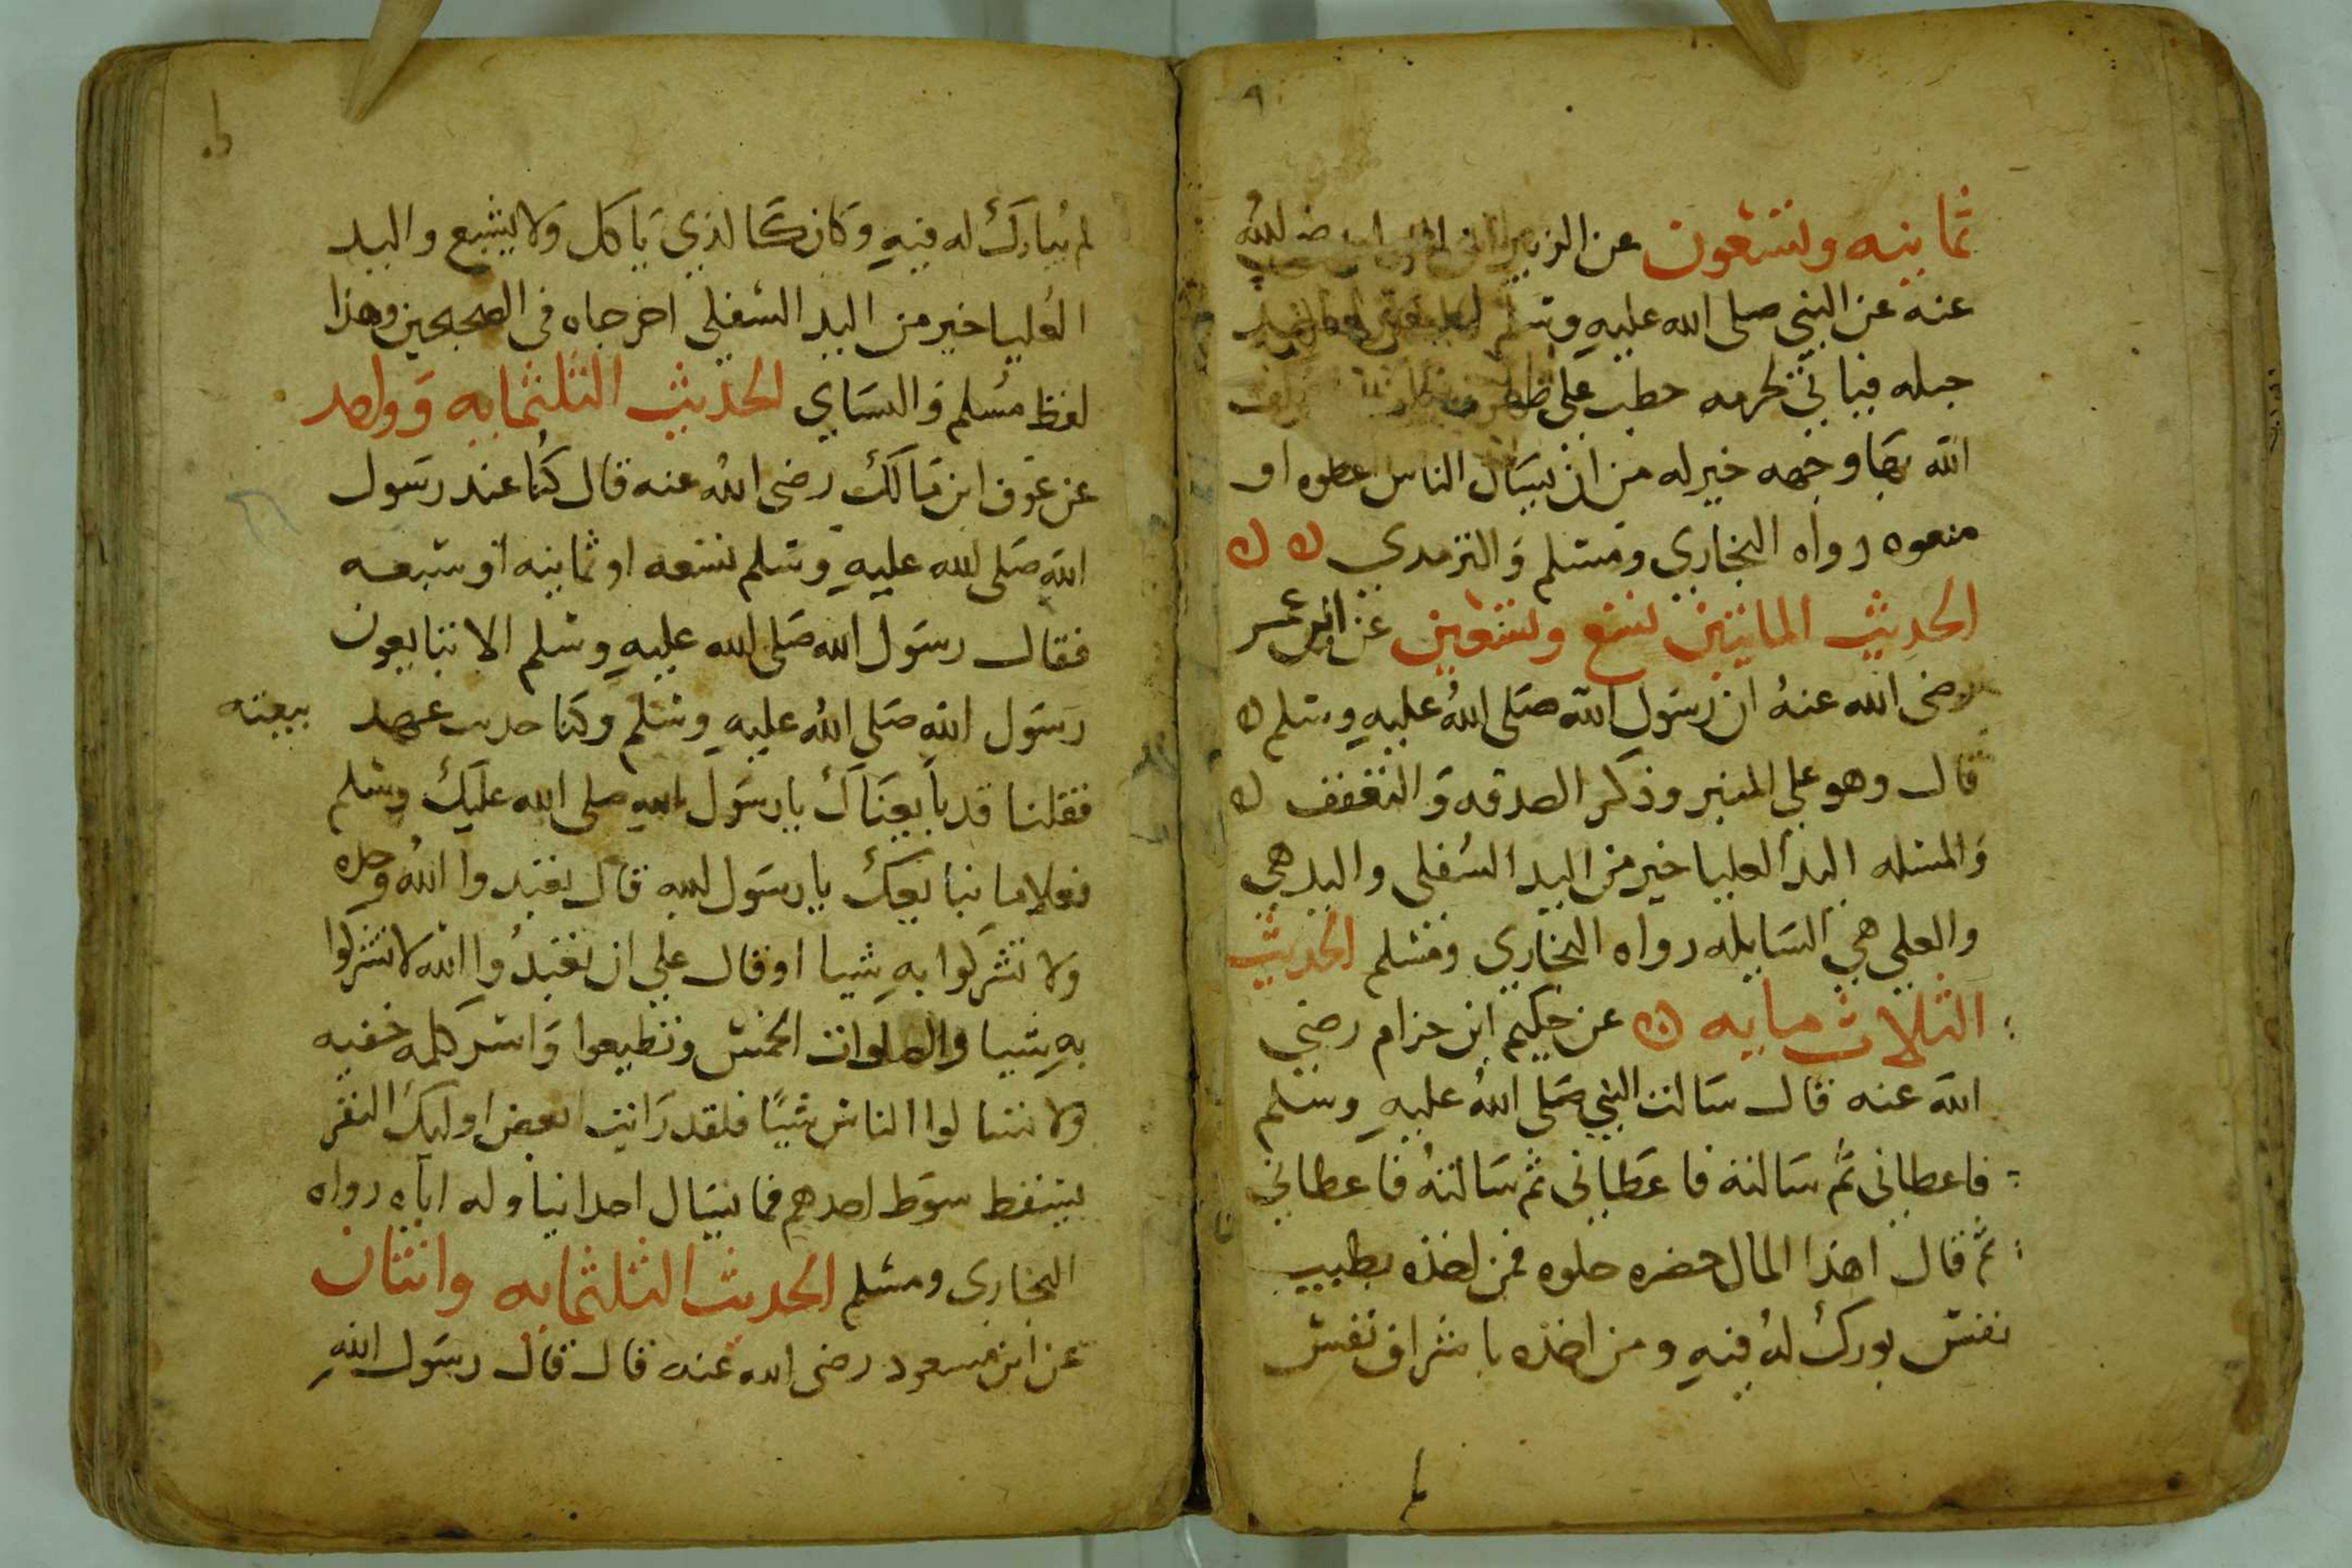 ثمانيه وتسعون عن الزبير ابن العوام رضي الله
عنه عن النبي صلى الله عليه وسلم
حبله فياتي بحزمه حطب على ظهره
الله بها وجهه خير له من ان يسال الناس اعطوه او
منعوه رواه البخاري ومسلم والترمدي ن ن
الحديث المايتين تسع وتسعين عن ابن عمر
رضى الله عنه ان رسول الله صلى الله عليه وسلم ن
قال وهو على المنبر وذكر الصدقه والتعفف ن
والمسله اليد العليا خير من اليد السفلى واليد هي
والعلي هي السايله رواه البخاري ومسلم الحديث
الثلاث مايه ن عن حكيم ابن حزام رضي
الله عنه قال سالت النبي صلى الله عليه وسلم
فاعطانى ثم سالته فاعطاني ثم سالته فاعطاني
ثم قال اهذا المال حضره حلوه فمن اخذه بطيب
نفس بورك له فيه ومن اخذه باشراف نفس
لم يبارك له فيه وكان كالذي ياكل ولا يشبع واليد
العليا خير من اليد السفلي اخرجاه فى الصحيحين وهذا
لفظ مسلم والنساي الحديث الثلثمايه وواحد
عن عوف ابن مالك رضى الله عنه قال كنا عند رسول
الله صلى الله عليه وسلم تسعه او ثمانيه او سبعه
فقال رسول الله صلى الله عليه وسلم الا تبايعون
رسول الله صلى الله عليه وسلم وكنا حديث عهد ببيعته
فقلنا قد بايعناك يا رسول الله صلى الله عليك وسلم
فعلاما نبايعك يا رسول الله قال تعبدوا الله وحده
ولا تشركوا به شيا او قال على ان تعبدوا الله لا تشركوا
به شيا والصلوات الخمس وتطيعوا واسر كلمه خفيه
ولا تسالوا الناس شيئا فلقد رايت بعض اوليك النفر
يسقط سوط احدهم فما يسال احدا يناوله اياه رواه
البخارى ومسلم الحديث الثلثمايه واثنان
عن ابن مسعود رضى الله عنه قال قال رسول الله